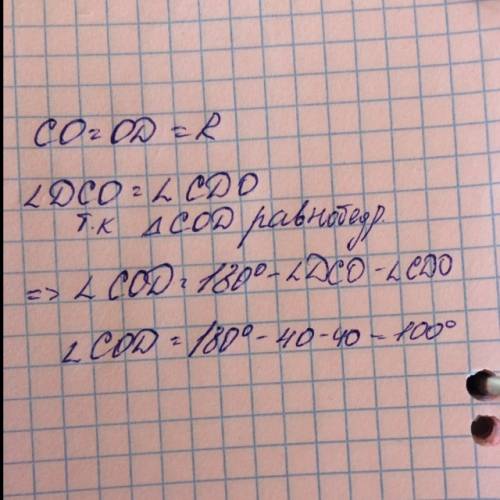 CO = OD = R
∠DCO = ∠CDO
т.к △COD равнобедр.
=> ∠COD = 180° - ∠DCO - ∠CDO
∠COD = 180° - 40 - 40 = 100°